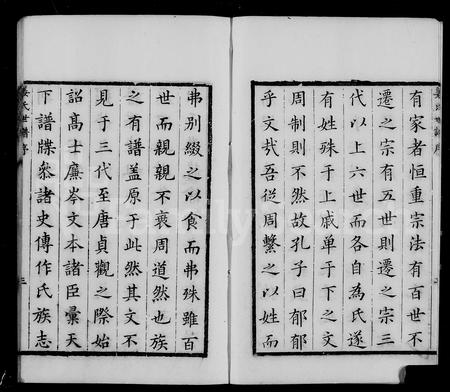 有家者恒重宗法有百世不
遷之宗有五世則遷之宗三
代以上六世而各自為氏遂
有姓殊于上戚单于下之文
周制則不然故孔子曰郁郁
乎文㢤吾從周繫之以姓而
弗别綴之以食而弗殊雖百
世而親親不衰周道然也族
之有譜盖原于此然其文不
見于三代至唐貞觀之際始
詔高士廉岑文本諸臣彙天
下譜牒叅諸史傳作氏族志
姜氏世譜序
三